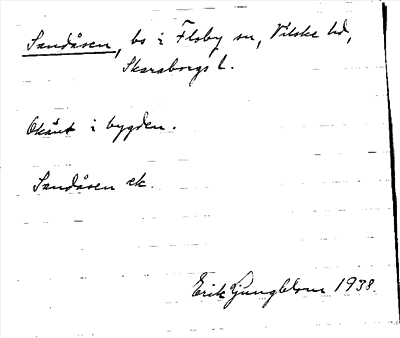 Sandåsen, bs i Floby sn, Vilske hd,
Skaraborgs l.
Okänt i bygden.
Sandåsen ek.
Erik Ljungblom 1938.